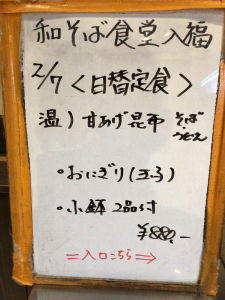 和そば食堂入福
2/7<日替定食>
温)甘あげ昆布 そば・うどん
・おにぎり(玉子)
・小鉢2品付
¥880,-
=入口こちら⇒